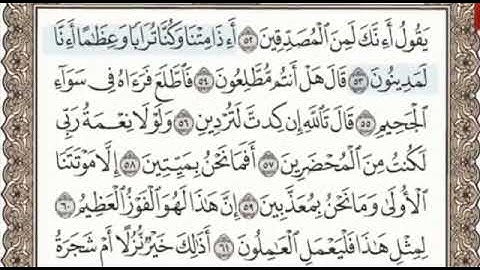 يَقُولُ أَءِنَّكَ لَمِنَ ٱلْمُصَدِّقِينَ ۝٥٢ أَءِذَا مِتْنَا وَكُنَّا تُرَابًا وَعِظَٰمًا أَءِنَّا
لَمَدِينُونَ ۝٥٣ قَالَ هَلْ أَنتُم مُّطَّلِعُونَ ۝٥٤ فَٱطَّلَعَ فَرَءَاهُ فِى سَوَآءِ
ٱلْجَحِيمِ ۝٥٥ قَالَ تَٱللَّهِ إِن كِدتَّ لَتُرْدِينِ ۝٥٦ وَلَوْلَا نِعْمَةُ رَبِّى
لَكُنتُ مِنَ ٱلْمُحْضَرِينَ ۝٥٧ أَفَمَا نَحْنُ بِمَيِّتِينَ ۝٥٨ إِلَّا مَوْتَتَنَا
ٱلْأُولَىٰ وَمَا نَحْنُ بِمُعَذَّبِينَ ۝٥٩ إِنَّ هَٰذَا لَهُوَ ٱلْفَوْزُ ٱلْعَظِيمُ ۝٦٠
لِمِثْلِ هَٰذَا فَلْيَعْمَلِ ٱلْعَٰمِلُونَ ۝٦١ أَذَٰلِكَ خَيْرٌ نُّزُلًا أَمْ شَجَرَةُ